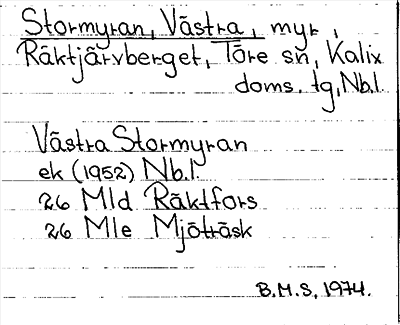 Stormyran, Västra, myr,
Räktjärvberget, Töre sn, Kalix
doms. tg, Nb.l.
Västra Stormyran
ek (1952) Nb.l.
26 Mld Räktfors
26 Mle Mjöträsk
B.M.S, 1974.